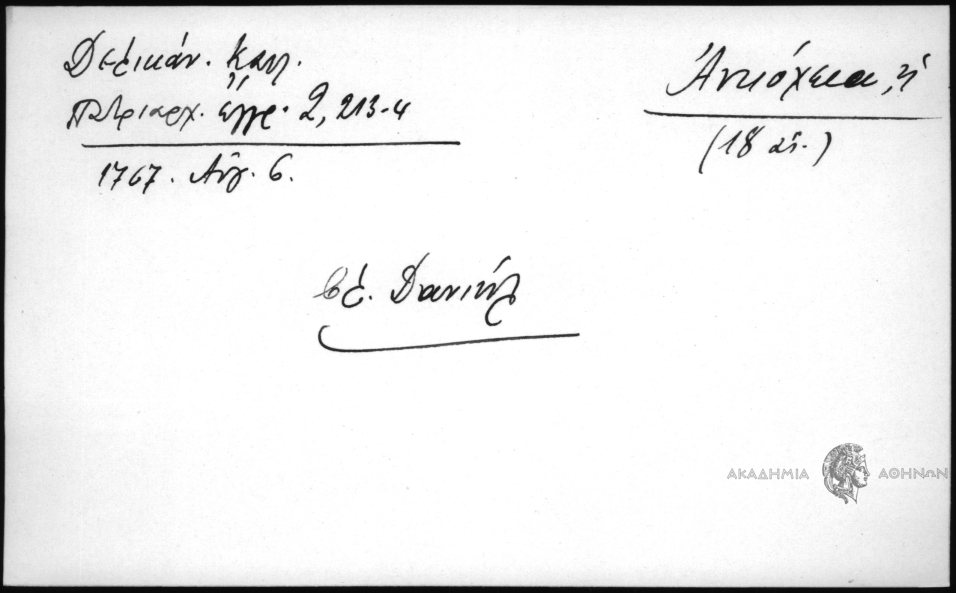 Δελικάν. Καλ.
Πατριαρχ. ἔγγρ. 2, 213-4
1767. Αὐγ. 6.
Ἀντιόχεια, ἡ
(18 αἰ.)
βλ. Δανιήλ
ΑΚΑΔΗΜΙΑ ΑΘΗΝΩΝ